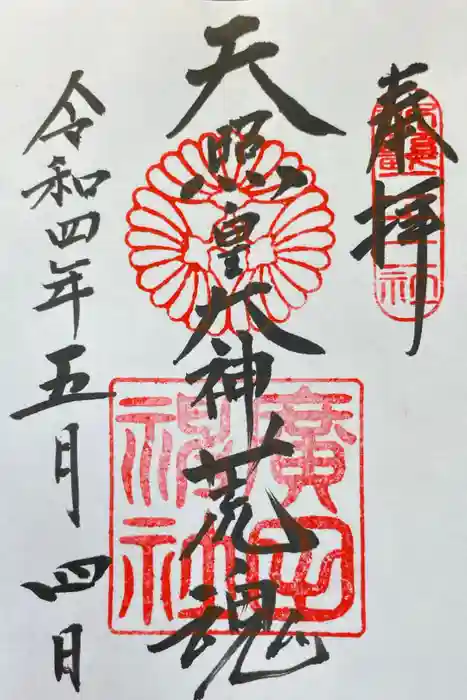 奉拝
天照皇大神荒魂
廣田神社
令和四年五月四日